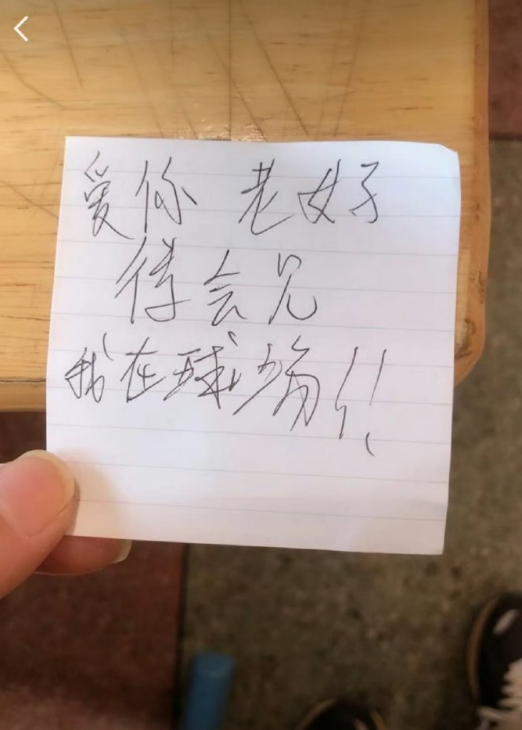 爱你 老女子
待会见
我在球场!!